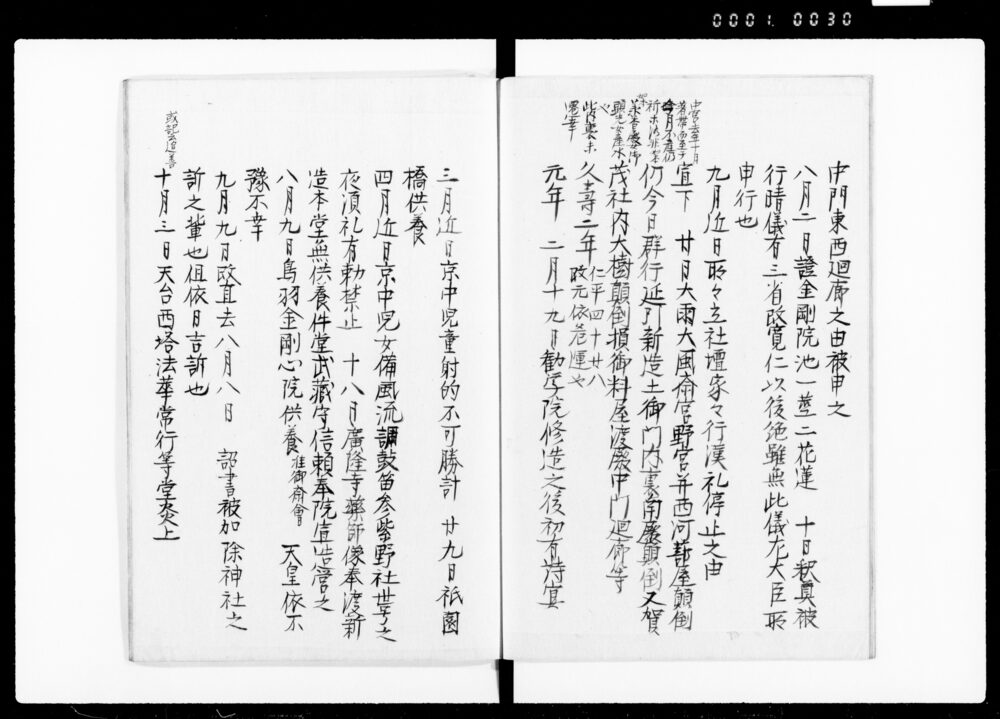 0001 0030
中門東西廻廊之由被申之
八月二日證金剛院池一莖二花蓮　十日釈奠被
行晴儀有三省政寛仁以後絶雖無此儀左大臣所
申行也
九月近日所々立社壇家々行漢礼停止之由
宣下　廿日大雨大風斎宮野宮并西河葬屋顛倒
仍今日群行延引新造土御門内裏南殿顛倒又賀
茂社内大樹顛倒損御料屋渡殿中門廻廊等
久寿二年仁平四十廿八
改元依厄運也
元年　二月十九日勧学院修造之後初有詩宴
三月近日京中児童射的不可勝計　廿九日祇園
橋供養
四月近日京中児女備風流調鼓笛参紫野社世号之
夜須礼有勅禁止　十八日廣隆寺薬師像奉渡新
造本堂無供養件堂武蔵守信頼奉院宣造営之
八月九日鳥羽金剛心院供養准御斎會　天皇依不
豫不幸
九月九日改直去八月八日　詔書被加除神社之
訴之輩也但依日吉訴也
或記云追善
十月三日天台西塔法華常行等堂炎上